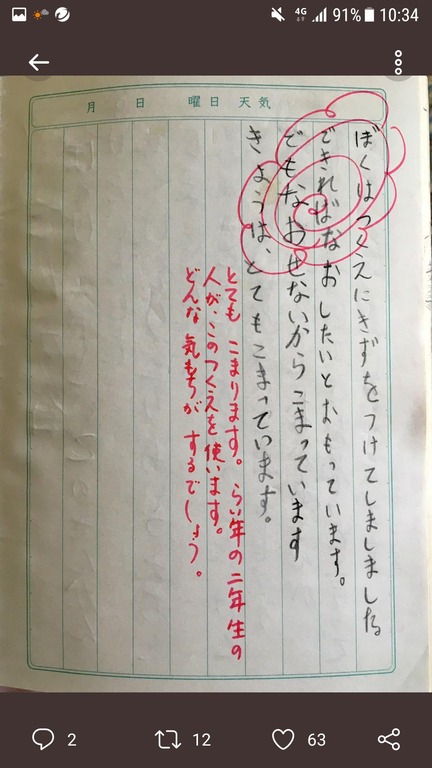 91% 10:34
4G
月 日 曜日 天気
ぼくはつくえにきずをつけてしましました
できればなおしたいとおもっています。
でもなおせないからこまっています
きょうは、とてもこまっています。
とても こまります。らい年の二年生の
人が、このつくえを使います。
どんな気もちがするでしょう。
2 12 63